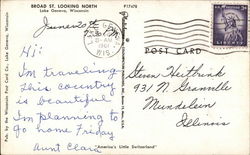 BROAD ST. LOOKING NORTH
Lake Geneva, Wisconsin
P17678
June 20th
2:30 P.M.
1961
WIS.
Hi:
I'm traveling
this country is
beautiful
I'm planning to
go home Friday
Aunt Clara
POST CARD
Steven Heitbrink
931 N
Mundelein
Illinois
Pub. by the Wisconsin Post Card Co., Lake Geneva, Wisconsin
"America's Little Switzerland"